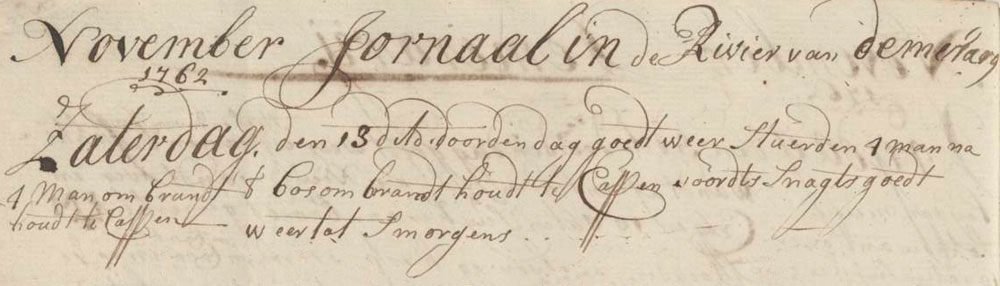 November Jornaal in de Rivier van demerarij
1762
Zaterdag den 13 dito door den dag goedt weer stuerden 4 man na
4 Man om brandt
houdt te Cappen
t bos om brandt houdt te Cappen voordts Snagts goedt
weer tot Smorgens . . .